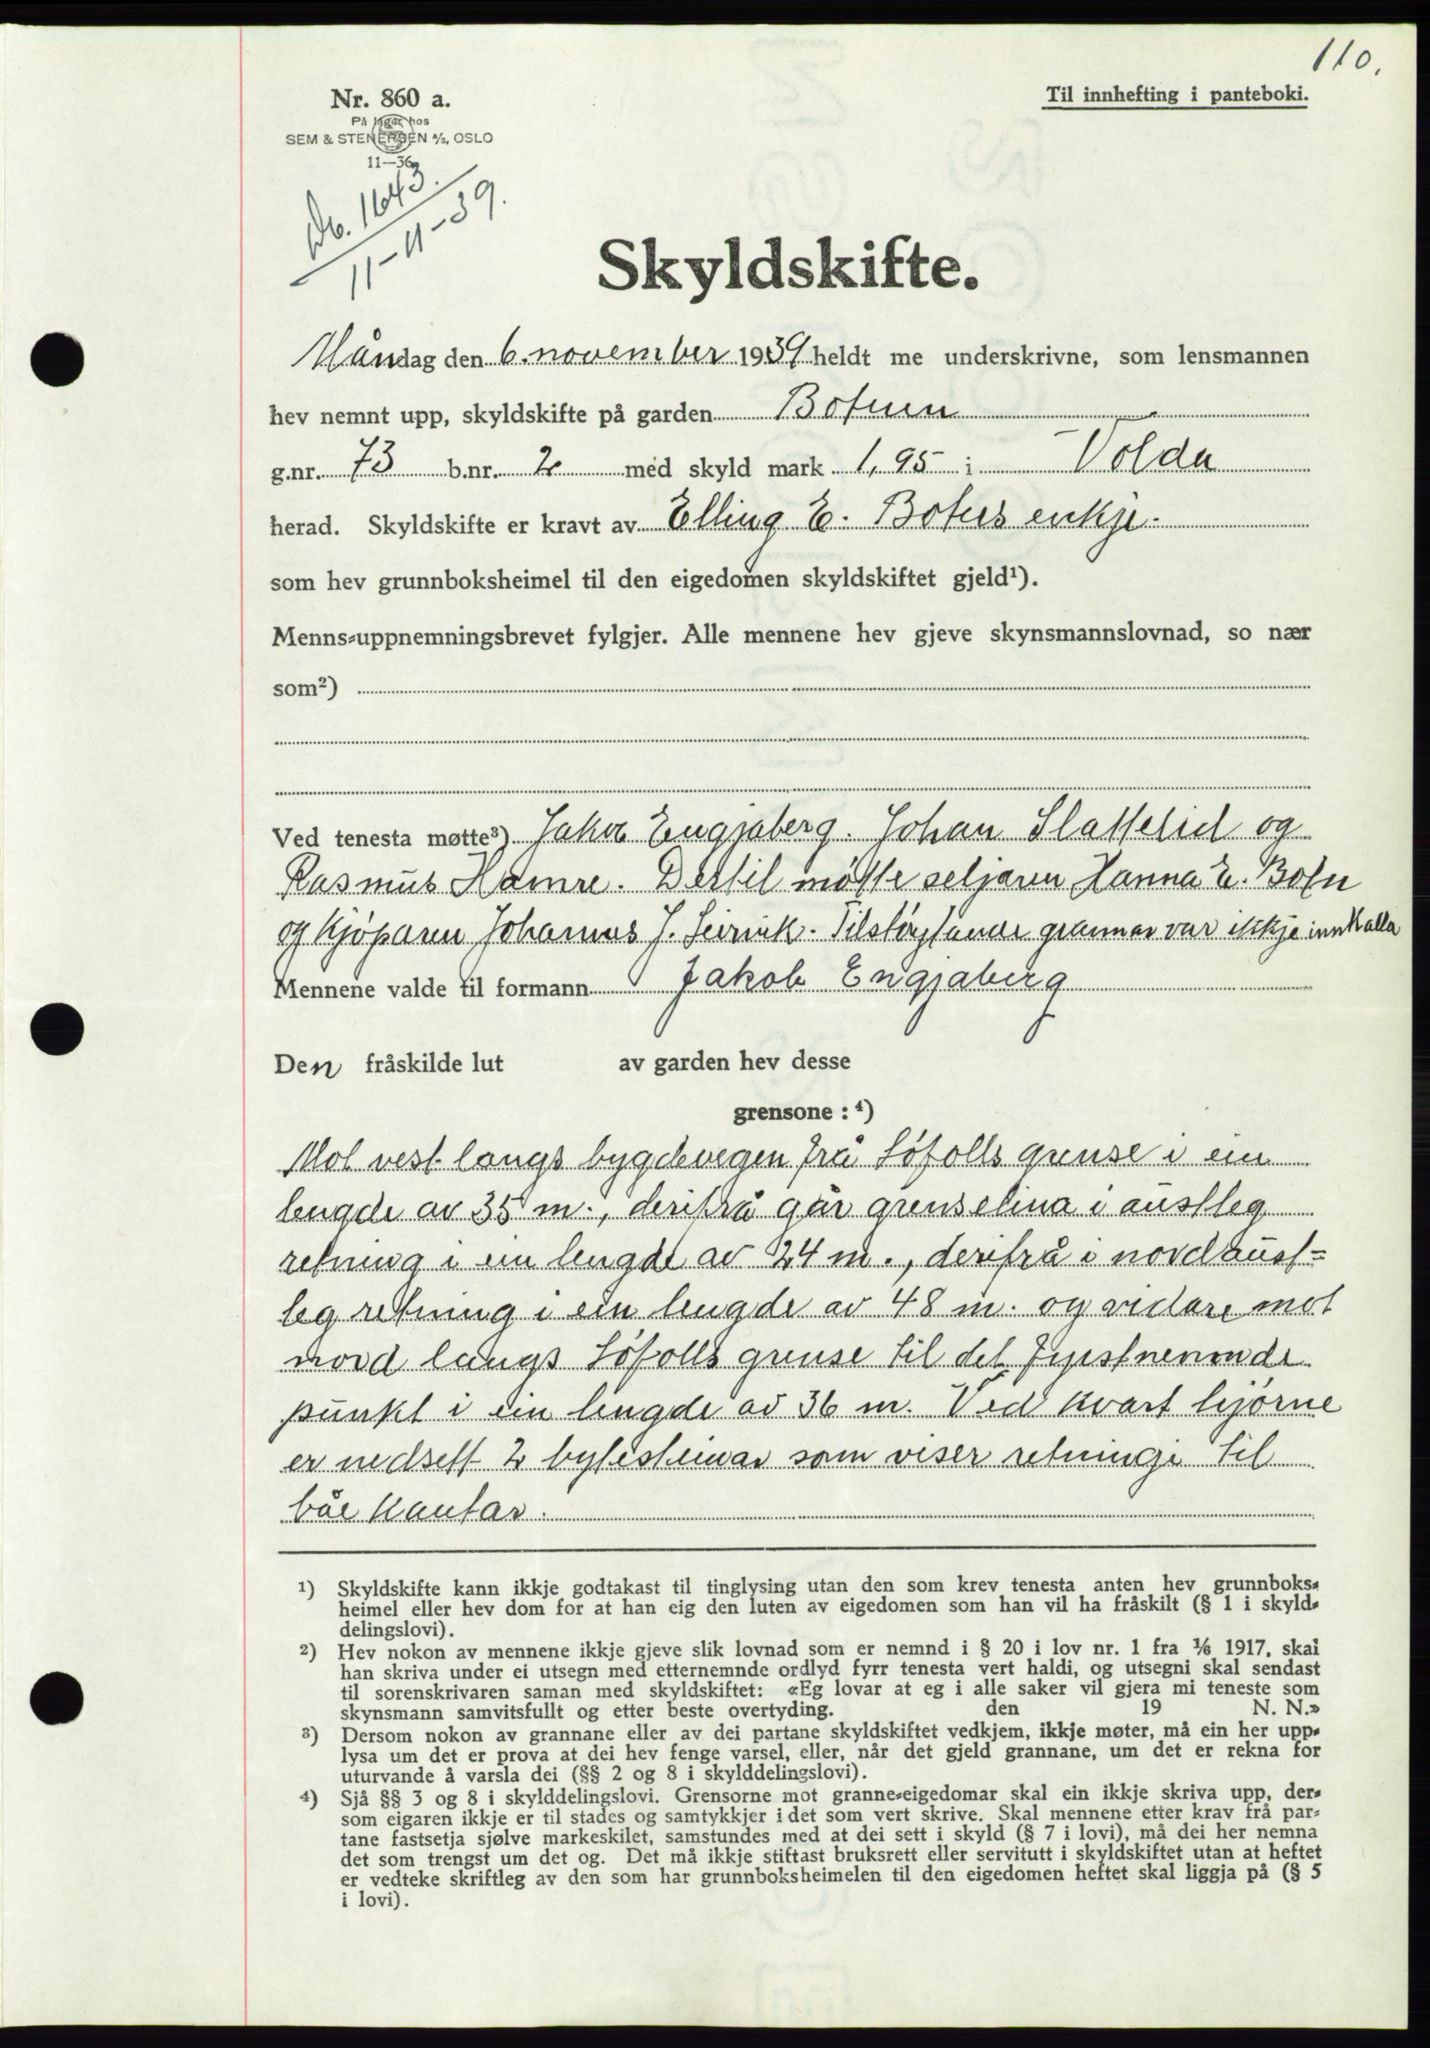 110.
Nr. 860 a.
Til innhefting i panteboki.
På lager hos
SEM & STENERSEN A/S, OSLO
11—36
Db. 1643.
11-11-39.
Skyldskifte.
Måndag den 6. november 1939 heldt me underskrivne, som lensmannen
hev nemnt upp, skyldskifte på garden Botnen
g.nr. 73 b.nr. 2 med skyld mark 1,95 i Volda
herad. Skyldskifte er kravt av Elling E. Botns enkje.
som hev grunnboksheimel til den eigedomen skyldskiftet gjeld¹).
Menns-uppnemningsbrevet fylgjer. Alle mennene hev gjeve skynsmannslovnad, so nær
som²)
Ved tenesta møtte³) Jakob Engjaberg. Johan Slettelid og
Rasmus Hamre. Dertil møtte seljaren Hanna E. Botn
og kjøparen Johannes J. Leirvik. Tilstøytande grannar var ikkje innkalla
Mennene valde til formann Jakob Engjaberg
Den fråskilde lut av garden hev desse
grensone : ⁴)
Mot vest langs bygdevegen frå Søfolls grense i ein
lengde av 35 m., derifrå går grenselina i austleg
retning i ein lengde av 24 m., derifrå i nordaust=
leg retning i ein lengde av 48 m. og vidare mot
nord langs Søfolls grense til det fyrstnemnde
punkt i ein lengde av 36 m. Ved kvart hjørne
er nedsett 2 bytesteinar som viser retningi til
båe kantar.
¹) Skyldskifte kann ikkje godtakast til tinglysing utan den som krev tenesta anten hev grunnboks-
heimel eller hev dom for at han eig den luten av eigedomen som han vil ha fråskilt (§ 1 i skyld-
delingslovi).
²) Hev nokon av mennene ikkje gjeve slik lovnad som er nemnd i § 20 i lov nr. 1 fra ⅙ 1917, skal
han skriva under ei utsegn med etternemnde ordlyd fyrr tenesta vert haldi, og utsegni skal sendast
til sorenskrivaren saman med skyldskiftet: «Eg lovar at eg i alle saker vil gjera mi teneste som
skynsmann samvitsfullt og etter beste overtyding. den 19 N. N.»
³) Dersom nokon av grannane eller av dei partane skyldskiftet vedkjem, ikkje møter, må ein her upp-
lysa um det er prova at dei hev fenge varsel, eller, når det gjeld grannane, um det er rekna for
uturvande å varsla dei (§§ 2 og 8 i skylddelingslovi).
⁴) Sjå §§ 3 og 8 i skylddelingslovi. Grensorne mot granne-eigedomar skal ein ikkje skriva upp, der-
som eigaren ikkje er til stades og samtykkjer i det som vert skrive. Skal mennene etter krav frå par-
tane fastsetja sjølve markeskilet, samstundes med at dei sett i skyld (§ 7 i lovi), må dei her nemna
det som trengst um det og. Det må ikkje stiftast bruksrett eller servitutt i skyldskiftet utan at heftet
er vedteke skriftleg av den som har grunnboksheimelen til den eigedomen heftet skal liggja på (§ 5
i lovi).